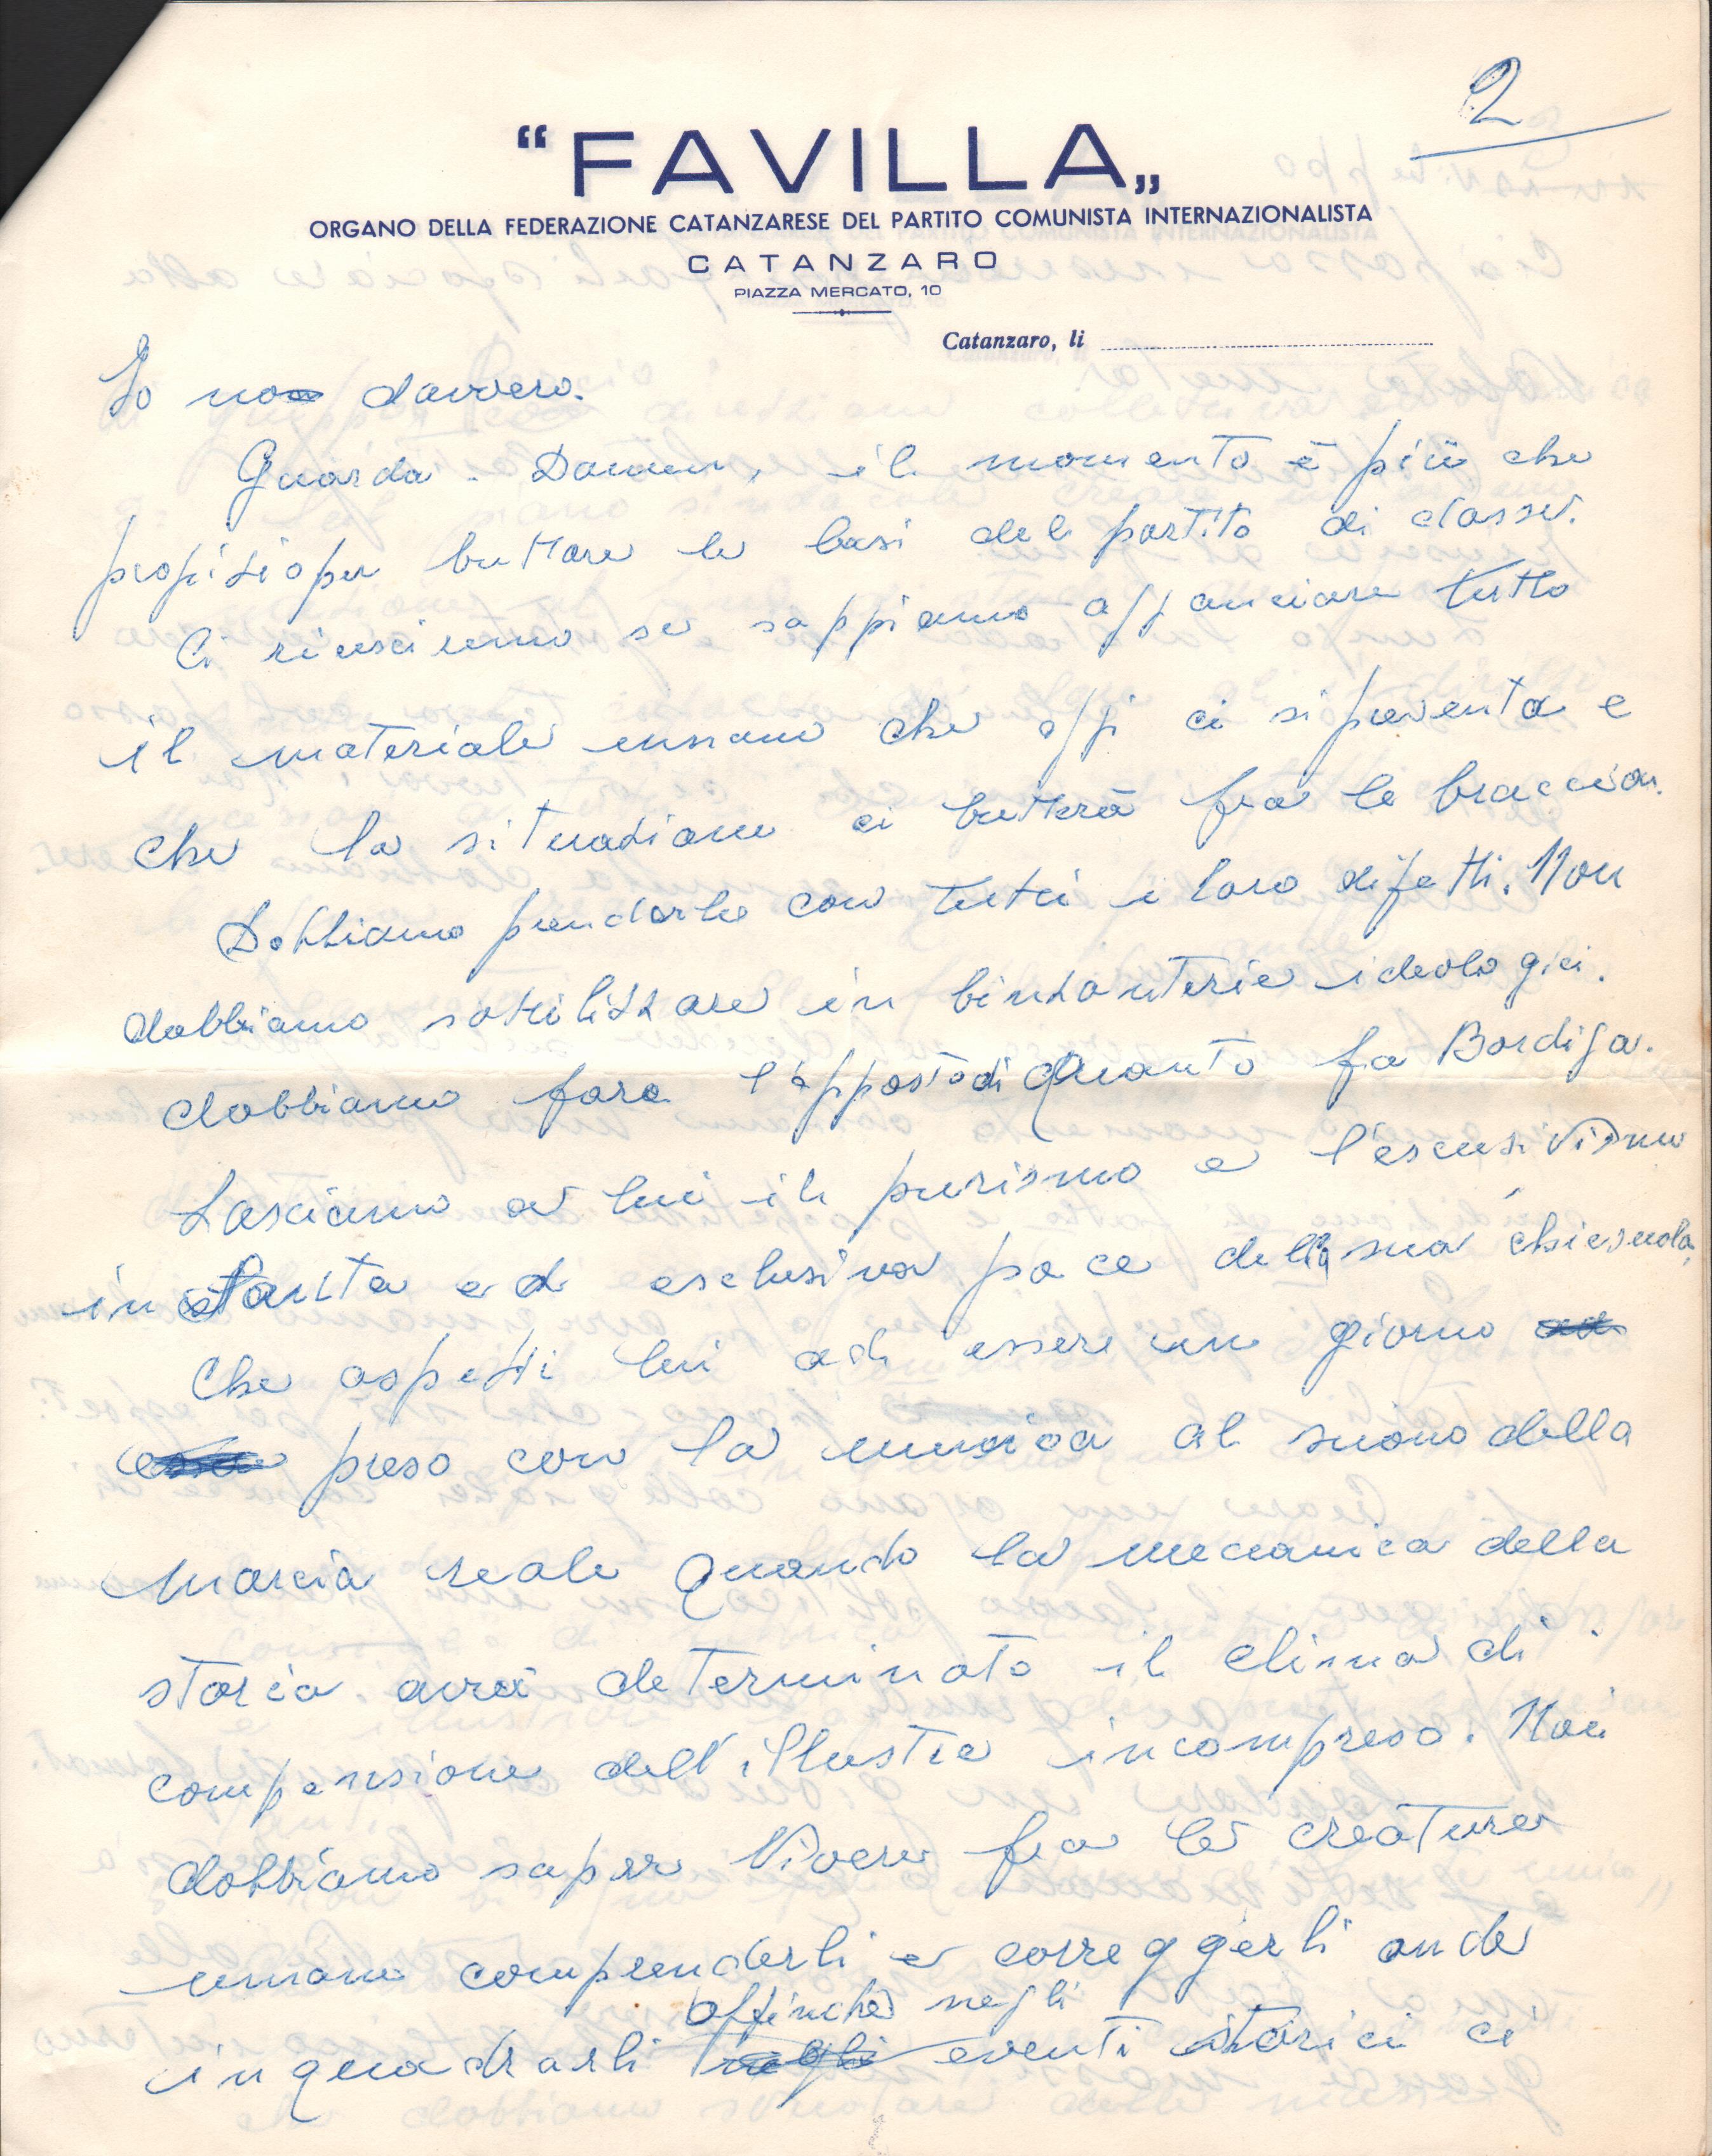 2
“FAVILLA„
ORGANO DELLA FEDERAZIONE CATANZARESE DEL PARTITO COMUNISTA INTERNAZIONALISTA
CATANZARO
PIAZZA MERCATO, 10
Catanzaro, li
Io no davvero.
Guarda Damen, il momento è più che
propizio per buttare le basi del partito di classe.
Ci riusciremo se sappiamo agganciare tutto
il materiale umano che oggi ci si presenta e
che la situazione ci butterà fra le braccia.
Dobbiamo prenderlo con tutti i loro difetti. Non
dobbiamo sottilizzare in bizanterie ideologici.
dobbiamo fare l'opposto di quanto fa Bordiga.
Lasciamo a lui il purismo e l'escusivismo
in santa ed esclusiva pace della sua chiesuola,
Che aspetti lui di essere un giorno
preso con la musica al suono della
marcia reale quando la meccanica della
storia avrà determinato il clima di
compensione dell'illustre incompreso. Noi
dobbiamo saper vivere fra le creature
umane comprenderli e correggerli onde
affinché negli
inquadrarli eventi storici ci